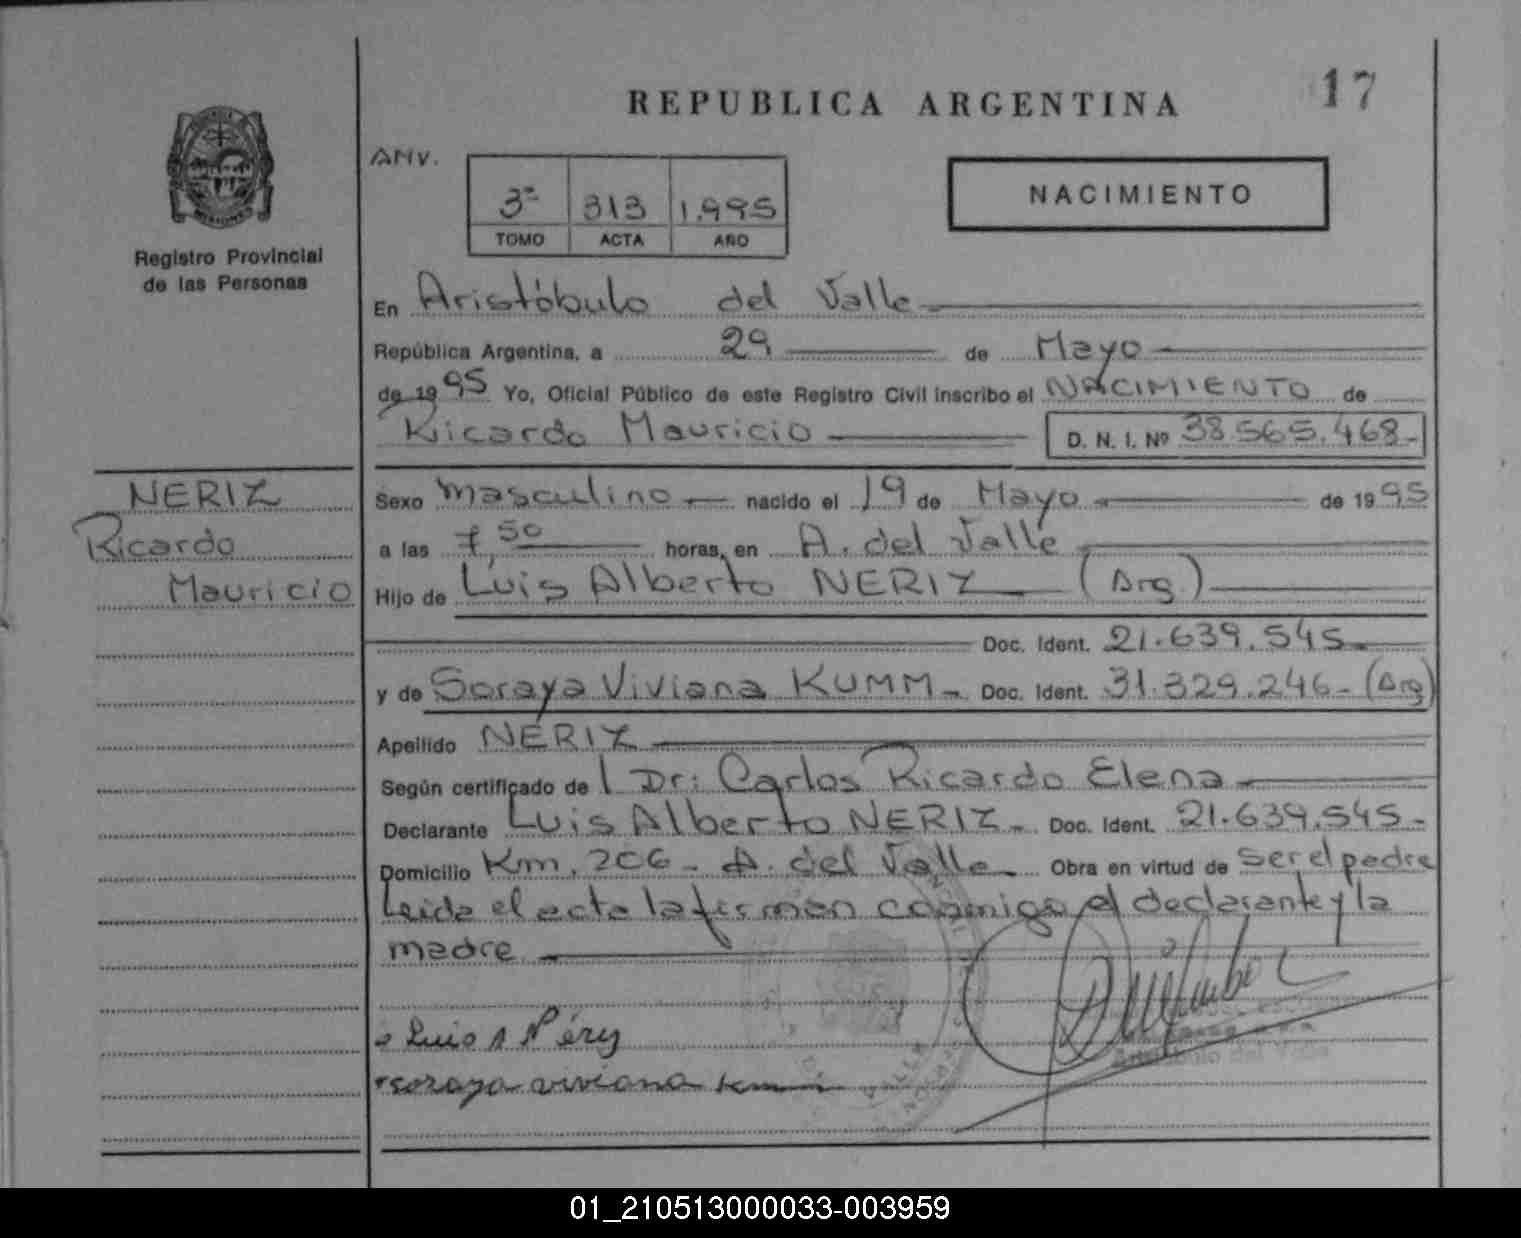 REPUBLICA ARGENTINA
17
ANV.
3º 313 1.995
TOMO ACTA AÑO
NACIMIENTO
Registro Provincial
de las Personas
En Aristóbulo del Valle
República Argentina, a 29 de Mayo
de 1995 Yo, Oficial Público de este Registro Civil inscribo el NACIMIENTO de
Ricardo Mauricio D. N. I. Nº 38.565.468-
NERIZ
Ricardo
Mauricio
Sexo masculino nacido el 19 de Mayo de 1995
a las 7,50 horas, en A. del Valle
Hijo de Luis Alberto NERIZ (Arg.)
Doc. Ident. 21.639.545-
y de Soraya Viviana KUMM- Doc. Ident. 31.329.246-(Arg)
Apellido NERIZ
Según certificado de l Dr: Carlos Ricardo Elena
Declarante Luis Alberto NERIZ- Doc. Ident. 21.639.545-
Domicilio Km. 206- A. del Valle- Obra en virtud de ser el padre
Leida el acta la firman conmigo el declarante y la
madre
Luis A Nériz
soraya viviana kumm
Aristóbulo del Valle
01_210513000033-003959